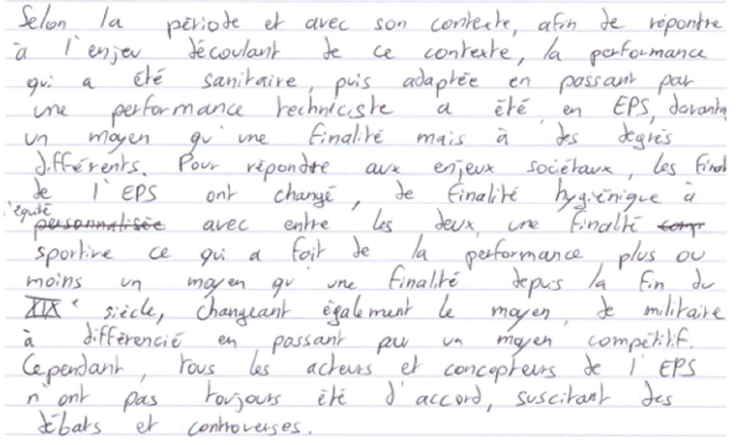 Selon la période et avec son contexte, afin de répondre
à l'enjeu découlant de ce contexte, la performance
qui a été sanitaire, puis adaptée en passant par
une performance techniciste a été, en EPS, davanta
un moyen qu'une finalité mais à des degrés
différents. Pour répondre aux enjeux sociétaux, les final
de l'EPS ont changé, de finalité hygiénique à
l'équité
personnalisée avec entre les deux une finalité comp
sportive ce qui a fait de la performance plus ou
moins un moyen qu'une finalité depuis la fin du
XIXe siècle, changeant également le moyen, de militaire
à différencié en passant par un moyen compétitif.
Cependant, tous les acteurs et concepteurs de l'EPS
n'ont pas toujours été d'accord, suscitant des
débats et controverses.